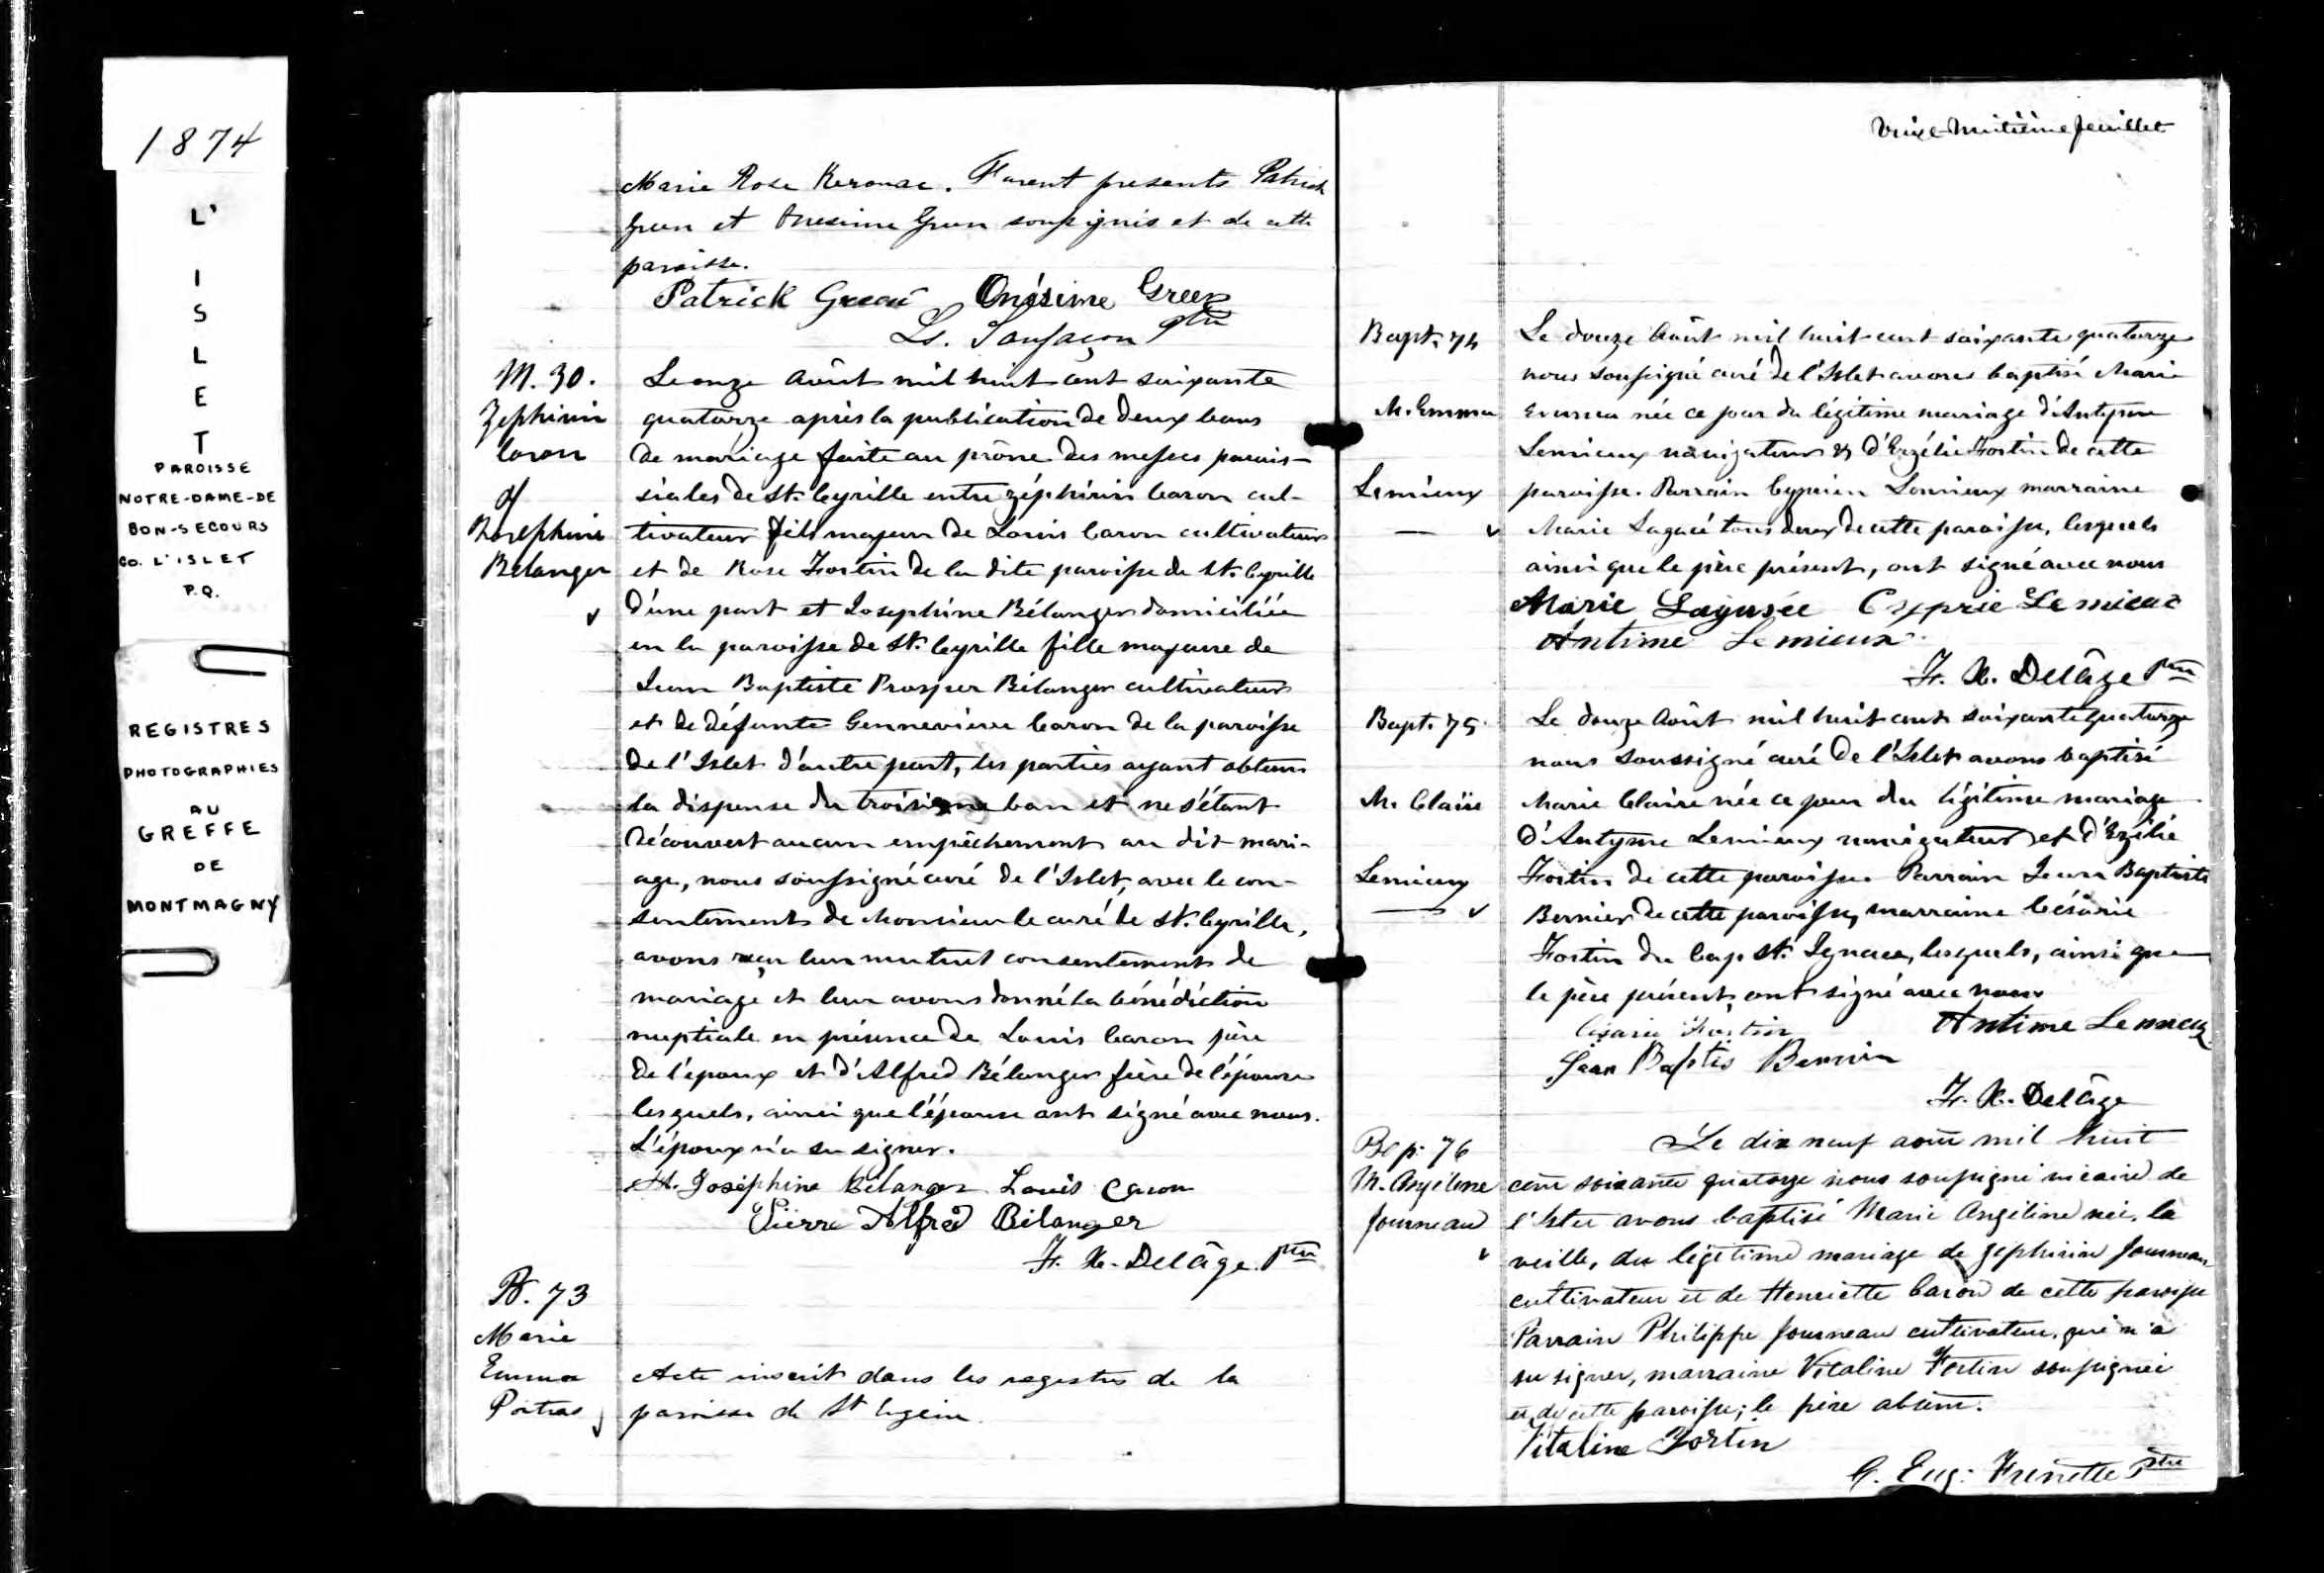 1874
L'
I
S
L
E
T
PAROISSE
NOTRE-DAME-DE
BON-SECOURS
CO. L'ISLET
P.Q.
REGISTRES
PHOTOGRAPHIES
AU
GREFFE
DE
MONTMAGNY
Marie Rose Kerouac. Furent presents Patrick
Green et Onesime Green soussignés et de cette
paroisse.
Patrick Green Onésime Green
Ls. Sanfaçon Ptre
M. 30.
Zephirin
Caron
&
Josephine
Bélanger
Le onze Août mil huit cent soixante
quatorze après la publication de deux bans
de mariage faite au prône des messes parois-
siales de St. Cyrille entre Zéphirin Caron cul-
tivateur fils majeur de Louis Caron cultivateur
et de Rose Fortin de la dite paroisse de St. Cyrille
d'une part et Josephine Bélanger domiciliée
en la paroisse de St. Cyrille fille majeure de
Jean Baptiste Prosper Bélanger cultivateur
et de défunte Gennevieve Caron de la paroisse
de l'Islet d'autre part, les parties ayant obtenu
la dispense du troisieme ban et ne s'étant
découvert aucun empêchement au dit mari-
age, nous soussigné curé de l'Islet, avec le con-
sentement de Monsieur le curé de St. Cyrille,
avons reçu leur mutuel consentement de
mariage et leur avons donné la bénédiction
nuptiale en présence de Louis Caron père
de l'époux et d'Alfred Bélanger frère de l'épouse
lesquels, ainsi que l'épouse ont signé avec nous.
L'époux n'a su signer.
M. Joséphine Bélanger Louis Caron
Pierre Alfred Bélanger
F. X. Delâge Ptre
B. 73
Marie
Emma
Poitras
Acte inscrit dans les registres de la
paroisse de St Eugène
Vingt-huitième feuillet
Bapt. 74
M. Emma
Lemieux
Le douze Août mil huit cent soixante quatorze
nous soussigné curé de l'Islet avons baptisé Marie
Emma née ce jour du légitime mariage d'Antyme
Lemieux navigateur & d'Ezélie Fortin de cette
paroisse. Parrain Cyprien Lemieux marraine
Marie Lagacé tous deux de cette paroisse, lesquels
ainsi que le père présent, ont signé avec nous
Marie Lagasée Cyprie Lemieux
Antime Lemieux
F. X. Delâge Ptre
Bapt. 75.
M. Claire
Lemieux
Le douze Août mil huit cent soixante quatorze
nous soussigné curé de l'Islet avons baptisé
Marie Claire née ce jour du légitime mariage
d'Antyme Lemieux navigateur et d'Ezélie
Fortin de cette paroisse. Parrain Jean Baptiste
Bernier de cette paroisse, marraine Césarie
Fortin du Cap St. Ignace, lesquels, ainsi que
le père présent, ont signé avec nous
Césarie Fortin Antime Lemieux
Jean Baptis Bernier
F. X. Delâge
Bap. 76
M. Angeline
Journeau
Le dix neuf août mil huit
cent soixante quatorze nous soussigné vicaire de
l'Islet avons baptisé Marie Angéline née, la
veille, du légitime mariage de Zephirin Journeau,
cultivateur et de Henriette Caron de cette paroisse
Parrain Philippe Journeau cultivateur, qui n'a
su signer, marraine Vitaline Fortin soussignée
et de cette paroisse; le père absent.
Vitaline Fortin
G. Eug: Frenette Ptre